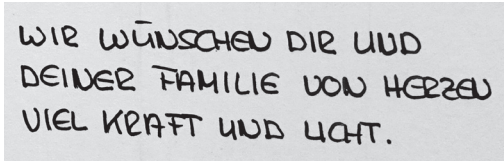 WIR WÜNSCHEN DIR UND
DEINER FAMILIE VON HERZEN
VIEL KRAFT UND LICHT.